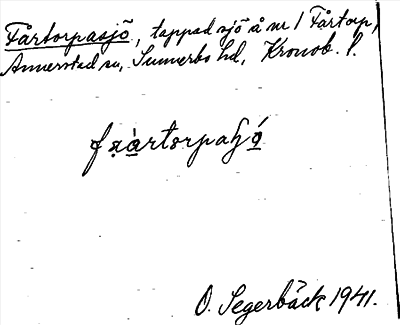 Fårtorpasjö, tappad sjö å nr 1 Fårtorp,
Annerstad sn, Sunnerbo hd, Kronob. l.
O. Segerbäck 1941.